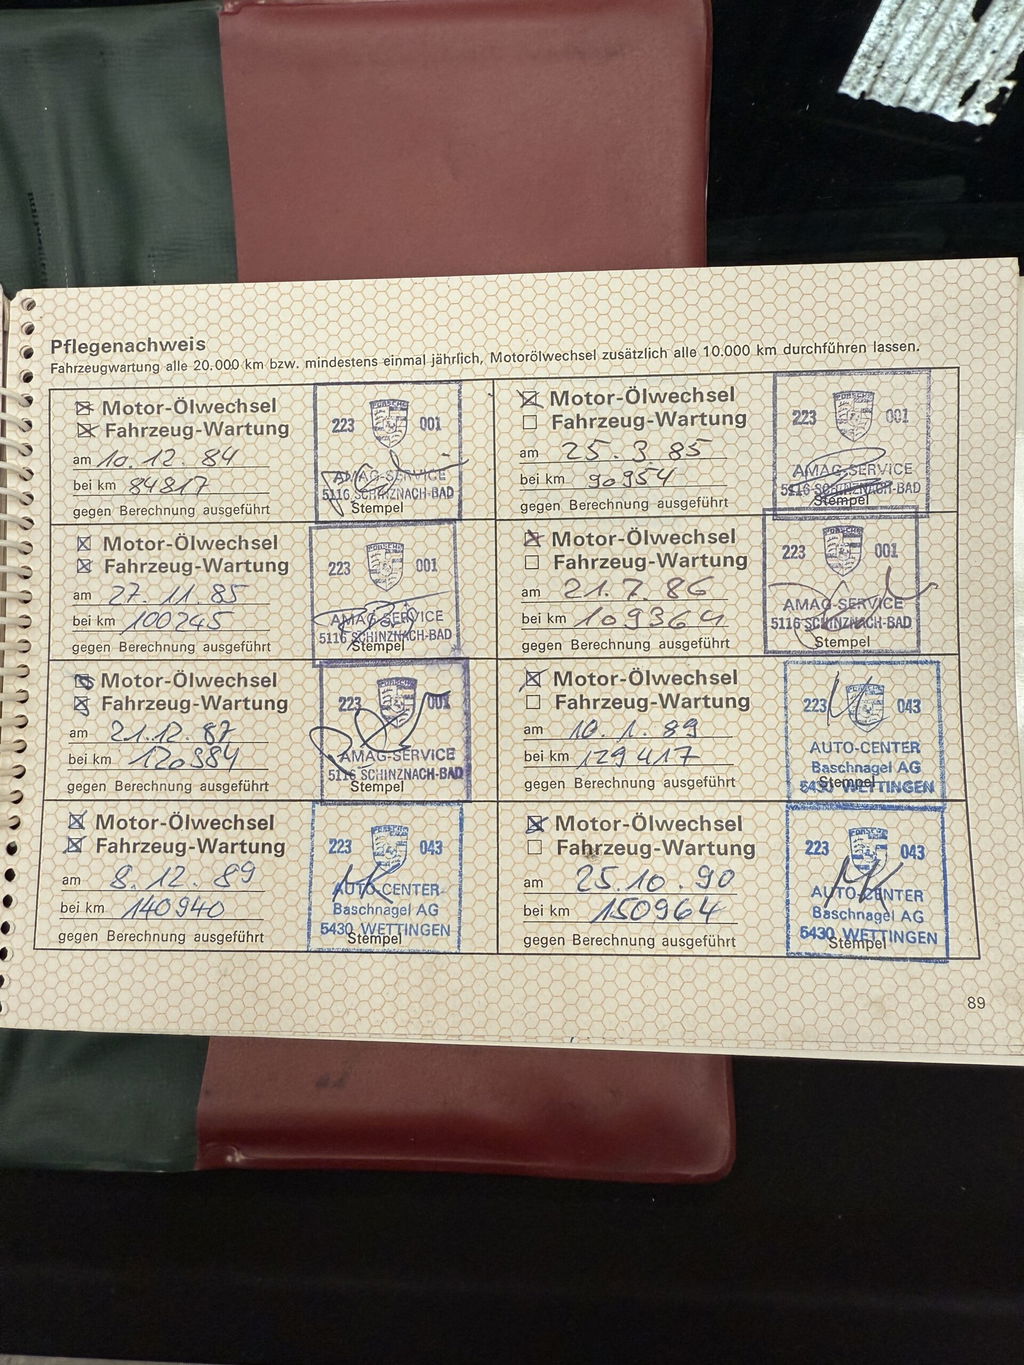 Pflegenachweis
Fahrzeugwartung alle 20.000 km bzw. mindestens einmal jährlich, Motorölwechsel zusätzlich alle 10.000 km durchführen lassen.
☒ Motor-Ölwechsel
☒ Fahrzeug-Wartung
am 10.12.84
bei km 84817
gegen Berechnung ausgeführt
PORSCHE
223 001
AMAG-SERVICE
5116 SCHINZNACH-BAD
Stempel
☒ Motor-Ölwechsel
☐ Fahrzeug-Wartung
am 25.3.85
bei km 90954
gegen Berechnung ausgeführt
PORSCHE
223 001
AMAG-SERVICE
5116 SCHINZNACH-BAD
Stempel
☒ Motor-Ölwechsel
☒ Fahrzeug-Wartung
am 27.11.85
bei km 100245
gegen Berechnung ausgeführt
PORSCHE
223 001
AMAG-SERVICE
5116 SCHINZNACH-BAD
Stempel
☒ Motor-Ölwechsel
☐ Fahrzeug-Wartung
am 21.7.86
bei km 109364
gegen Berechnung ausgeführt
PORSCHE
223 001
AMAG-SERVICE
5116 SCHINZNACH-BAD
Stempel
☒ Motor-Ölwechsel
☒ Fahrzeug-Wartung
am 21.12.87
bei km 120984
gegen Berechnung ausgeführt
PORSCHE
223 001
AMAG-SERVICE
5116 SCHINZNACH-BAD
Stempel
☒ Motor-Ölwechsel
☐ Fahrzeug-Wartung
am 10.1.89
bei km 129417
gegen Berechnung ausgeführt
PORSCHE
223 043
AUTO-CENTER
Baschnagel AG
5430 WETTINGEN
Stempel
☒ Motor-Ölwechsel
☒ Fahrzeug-Wartung
am 8.12.89
bei km 140940
gegen Berechnung ausgeführt
PORSCHE
223 043
AUTO-CENTER
Baschnagel AG
5430 WETTINGEN
Stempel
☒ Motor-Ölwechsel
☐ Fahrzeug-Wartung
am 25.10.90
bei km 150964
gegen Berechnung ausgeführt
PORSCHE
223 043
AUTO-CENTER
Baschnagel AG
5430 WETTINGEN
Stempel
89